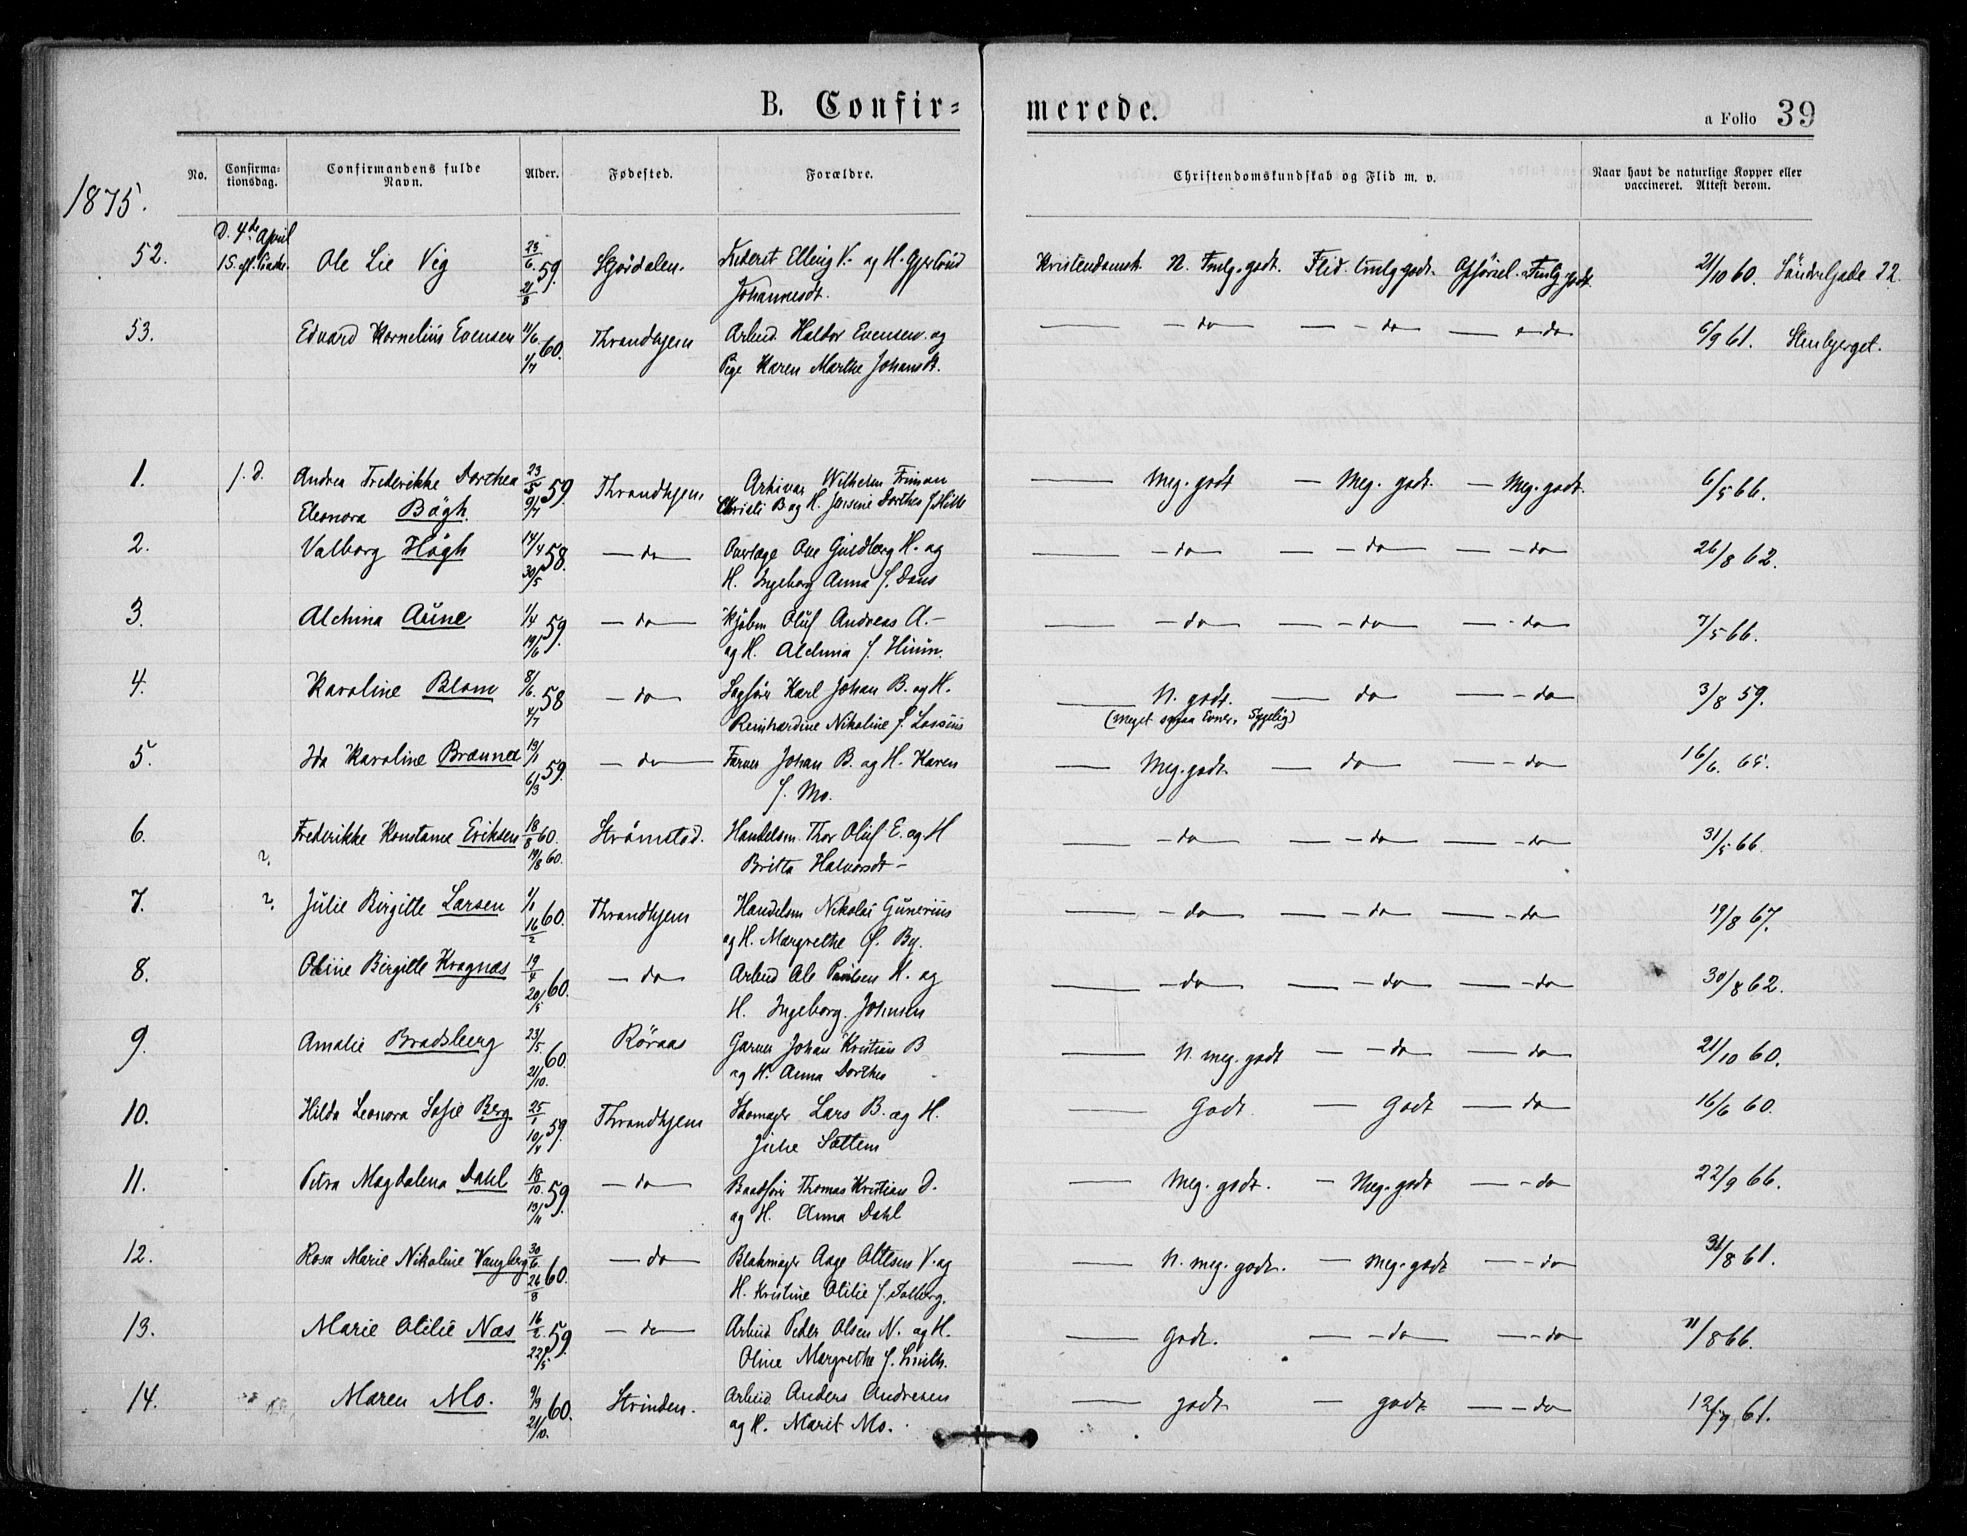 B. Confir=
merede.
a Folio 39
1875.
No. Confirma=tionsdag. Confirmandens fulde Navn. Alder. Fødested. Forældre. Christendomskundskab og Flid m. v. Naar havt de naturlige Kopper eller vaccineret. Attest derom.
D. 4de April
52. Ole Lie Vig 23/6 59. 21/8 og H. Gjertrud Kristendomsk. N. Tmlg. godt. Flid. tmlg godt. Opførsel. Tmlg godt. 21/10 60. Søndregade 22.
Johannesdt.
53. Edvard Kornelius Evensen 11/6 60. 1/7 Throndhjem Arbeid. Haldor Evensen og — do — do — do 6/9 61. Stenbjerget.
Pige Karen Marthe Johansdt.
1. f. D. Andrea Frederikke Dorthea 23/5 59. 9/7 Throndhjem Arkivar Wilhelm Friman — Meg. godt — Meg. godt. — Meg. godt. 6/5 66.
Eleonora Bøgh. Christi B og H. Jensine Dorthea f.
2. Valborg Høgh 14/4 58. 30/5 — do Overlæge Ove Guldberg H. og — do — do — do 26/8 62.
H. Ingeborg Anna f. Dons
3. Alchina Aune 1/4 59. 19/6 — do Kjøbm Oluf Andreas A. — — do — do — do 7/5 66.
og H. Alchina f.
4. Karoline Blom 8/6. 58 4/7 — do Sagfører Karl Johan B. og H. — N. godt. — do — do 3/8 59.
Reinhardine Nikoline f. Lossius (meget smaa Evner, Sygelig)
5. Ida Karoline Brænne 19/1 59. 6/3 — do Farver Johan B. og H. Karen — Meg. godt — do — do 16/6. 65.
f. Mo.
6. Frederikke Konstance Eriksen 18/8 60. 19/8 60. Strømstad. Handelsm. Thor Oluf E. og H — do — do — do 31/5 66.
Britta Halvorsdt —
7. Julie Birgitte Larsen 1/1 60. 16/2 Throndhjem Handelsm Nikolai Gunerius — do — do — do 19/8 67.
og H. Margrethe f. By.
8. Oline Birgitte Krognæs 19/4 60. 20/5 — do Arbeid Ole Paulsen K. og — do — do — do 30/8 62.
H. Ingeborg Johnsen
9. Amalie Bradsberg 23/5. 60. 21/10. Röraas Garver Johan Kristian B — N. meg. godt — do — do 21/10 60.
og H. Anna Dorthea
10. Hilda Leonora Sofie Berg 25/1 59. 10/4 Throndhjem Skomager Lars B. og H. — Godt — Godt — do 16/6 60.
Sættem
11. Petra Magdalena Dahl 18/10. 59. 13/11 — do Baadfører Thomas Kristian D. — Meg. godt. — Meg. godt — do 22/9 66.
og H. Anna Dahl
12. Rosa Marie Nikoline Vangberg 30/6. 60. 26/8 — do Blokmager Aage Ottesen V. og — N. meg. godt. — Meg. godt — do 31/8 61.
H. Kristine Otilie f. Solberg.
13. Marie Otilie Næs 16/2. 59. 22/5 — do Arbeid Peder Olsen N. og H. — Godt. — do — do 11/8 66.
Oline Margrethe f. Smith.
14. Maren Mo. 9/9 60. 21/10. Strinden. Arbeid Anders Andresen — godt — godt — do 12/9 61.
og H. Marit Mo.